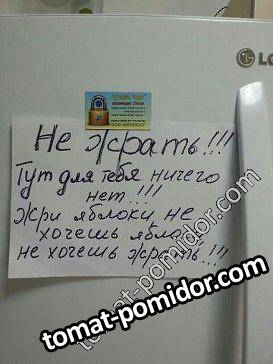 LG
Не жрать!!!
Тут для тебя ничего
нет!!!
Жри яблоки, не
хочешь яблок,
не хочешь жрать!!!
tomat-pomidor.com
tomat-pomidor.com
tomat-pomidor.com